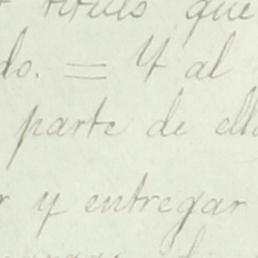 titulo que
do. = Y al
parte de ell
r y entregar